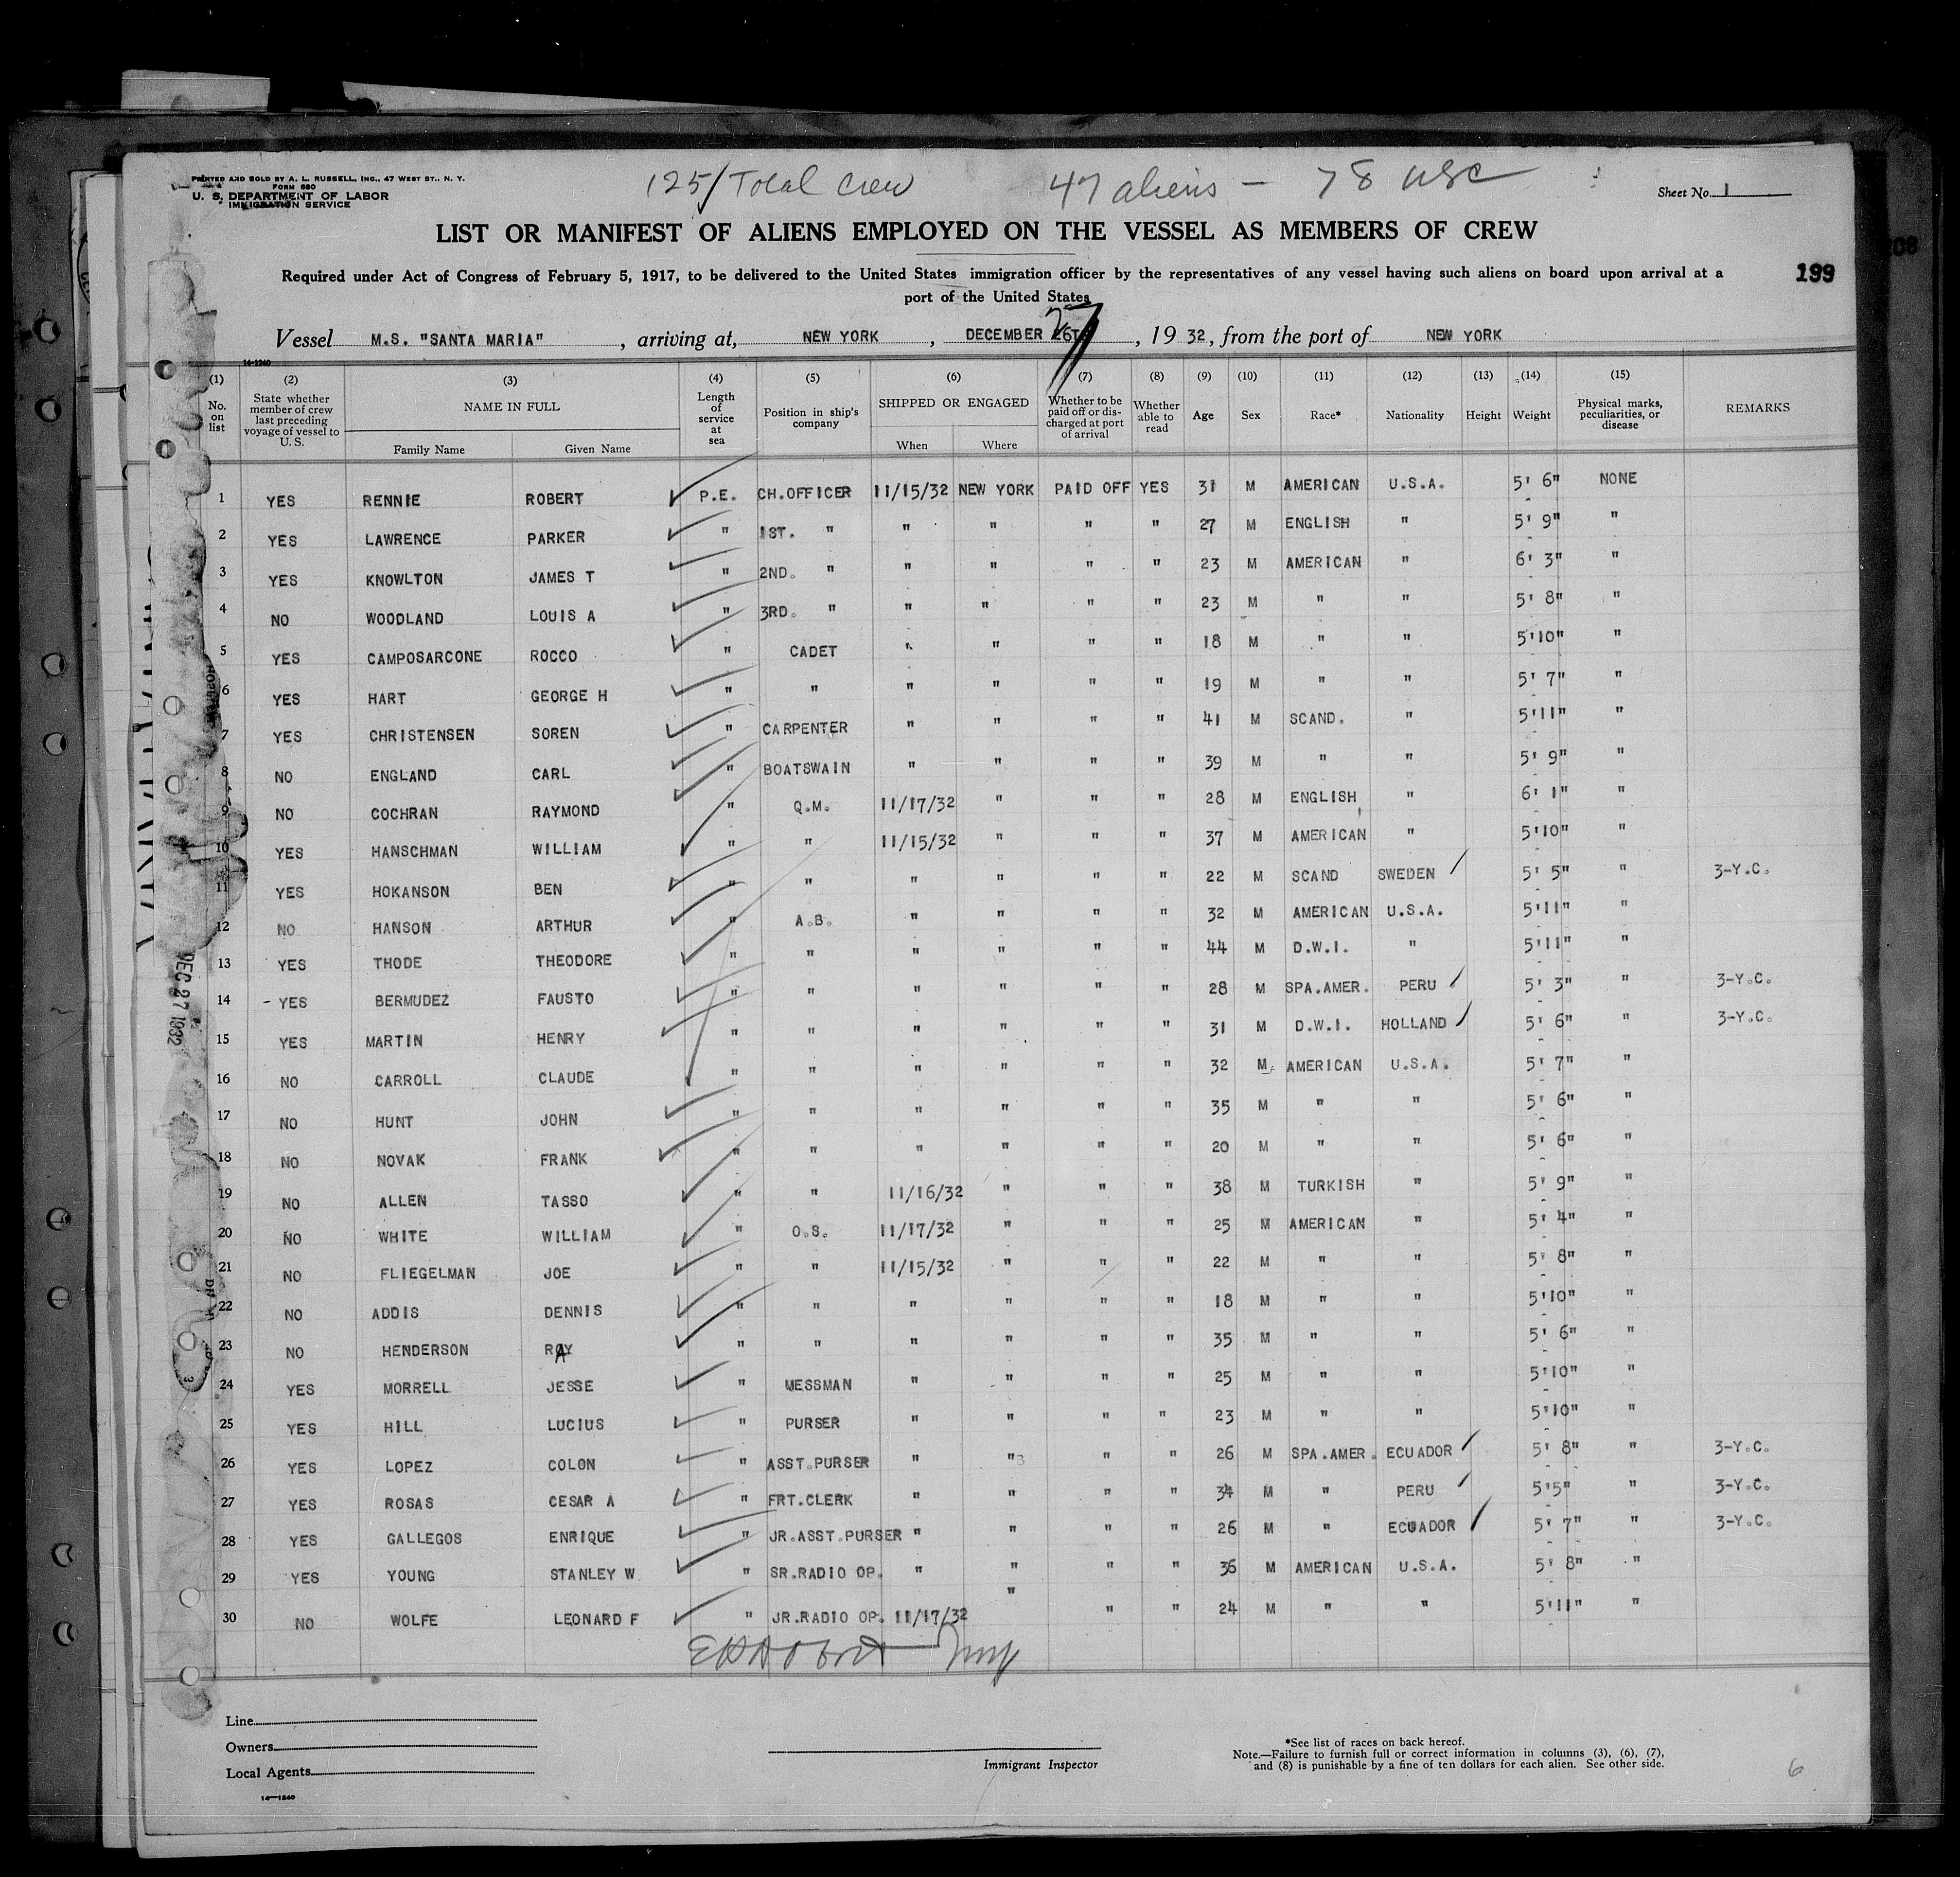 125/ Total Crew 47 aliens - 78 USC
PRINTED AND SOLD BY A. L. RUSSELL, INC., 47 WEST ST., N. Y.
FORM 680
U. S. DEPARTMENT OF LABOR
IMMIGRATION SERVICE
Sheet No. 1
LIST OR MANIFEST OF ALIENS EMPLOYED ON THE VESSEL AS MEMBERS OF CREW
Required under Act of Congress of February 5, 1917, to be delivered to the United States immigration officer by the representatives of any vessel having such aliens on board upon arrival at a
port of the United States
199
Vessel M.S. "SANTA MARIA", arriving at, NEW YORK, DECEMBER 26TH 27, 1932, from the port of NEW YORK
14-1240
(1) No. on list (2) State whether member of crew last preceding voyage of vessel to U. S. (3) NAME IN FULL Family Name Given Name (4) Length of service at sea (5) Position in ship's company (6) SHIPPED OR ENGAGED When Where (7) Whether to be paid off or discharged at port of arrival (8) Whether able to read (9) Age (10) Sex (11) Race* (12) Nationality (13) Height (14) Weight (15) Physical marks, peculiarities, or disease REMARKS
1 YES RENNIE ROBERT P.E. CH.OFFICER 11/15/32 NEW YORK PAID OFF YES 31 M AMERICAN U.S.A. 5' 6" NONE
2 YES LAWRENCE PARKER " 1ST. " " " " " 27 M ENGLISH " 5' 9" "
3 YES KNOWLTON JAMES T " 2ND. " " " " " 23 M AMERICAN " 6' 3" "
4 NO WOODLAND LOUIS A " 3RD. " " " " " 23 M " " 5' 8" "
5 YES CAMPOSARCONE ROCCO " CADET " " " " 18 M " " 5'10" "
6 YES HART GEORGE H " " " " " " 19 M " " 5' 7" "
7 YES CHRISTENSEN SOREN " CARPENTER " " " " 41 M SCAND. " 5'11" "
8 NO ENGLAND CARL " BOATSWAIN " " " " 39 M " " 5' 9" "
9 NO COCHRAN RAYMOND " Q.M. 11/17/32 " " " 28 M ENGLISH " 6' 1" "
10 YES HANSCHMAN WILLIAM " " 11/15/32 " " " 37 M AMERICAN " 5'10" "
11 YES HOKANSON BEN " " " " " " 22 M SCAND SWEDEN 5' 5" " 3-Y.C.
12 NO HANSON ARTHUR " A.B. " " " " 32 M AMERICAN U.S.A. 5'11" "
13 YES THODE THEODORE " " " " " " 44 M D.W.I. " 5'11" "
14 - YES BERMUDEZ FAUSTO " " " " " " 28 M SPA.AMER. PERU 5' 3" " 3-Y.C.
15 YES MARTIN HENRY " " " " " " 31 M D.W.I. HOLLAND 5' 6" " 3-Y.C.
16 NO CARROLL CLAUDE " " " " " " 32 M AMERICAN U.S.A. 5' 7" "
17 NO HUNT JOHN " " " " " " 35 M " " 5' 6" "
18 NO NOVAK FRANK " " " " " " 20 M " " 5' 6" "
19 NO ALLEN TASSO " " 11/16/32 " " " 38 M TURKISH " 5' 9" "
20 NO WHITE WILLIAM " O.S. 11/17/32 " " " 25 M AMERICAN " 5' 4" "
21 NO FLIEGELMAN JOE " " 11/15/32 " " " 22 M " " 5' 8" "
22 NO ADDIS DENNIS " " " " " " 18 M " " 5'10" "
23 NO HENDERSON RAY " " " " " " 35 M " " 5' 6" "
24 YES MORRELL JESSE " MESSMAN " " " " 25 M " " 5'10" "
25 YES HILL LUCIUS " PURSER " " " " 23 M " " 5'10" "
26 YES LOPEZ COLON " ASST.PURSER " " " " 26 M SPA.AMER. ECUADOR 5' 8" " 3-Y.C.
27 YES ROSAS CESAR A " FRT.CLERK " " " " 34 M " PERU 5'5" " 3-Y.C.
28 YES GALLEGOS ENRIQUE " JR.ASST.PURSER " " " " 26 M " ECUADOR 5' 7" " 3-Y.C.
29 YES YOUNG STANLEY W " SR.RADIO OP. " " " " 36 M AMERICAN U.S.A. 5' 8" "
30 NO WOLFE LEONARD F " JR.RADIO OP. 11/17/32 " " " 24 M " " 5'11" "
DEC 27 1932
Line
Owners
Local Agents
14-1240
Immigrant Inspector
*See list of races on back hereof.
Note.—Failure to furnish full or correct information in columns (3), (6), (7),
and (8) is punishable by a fine of ten dollars for each alien. See other side.
6